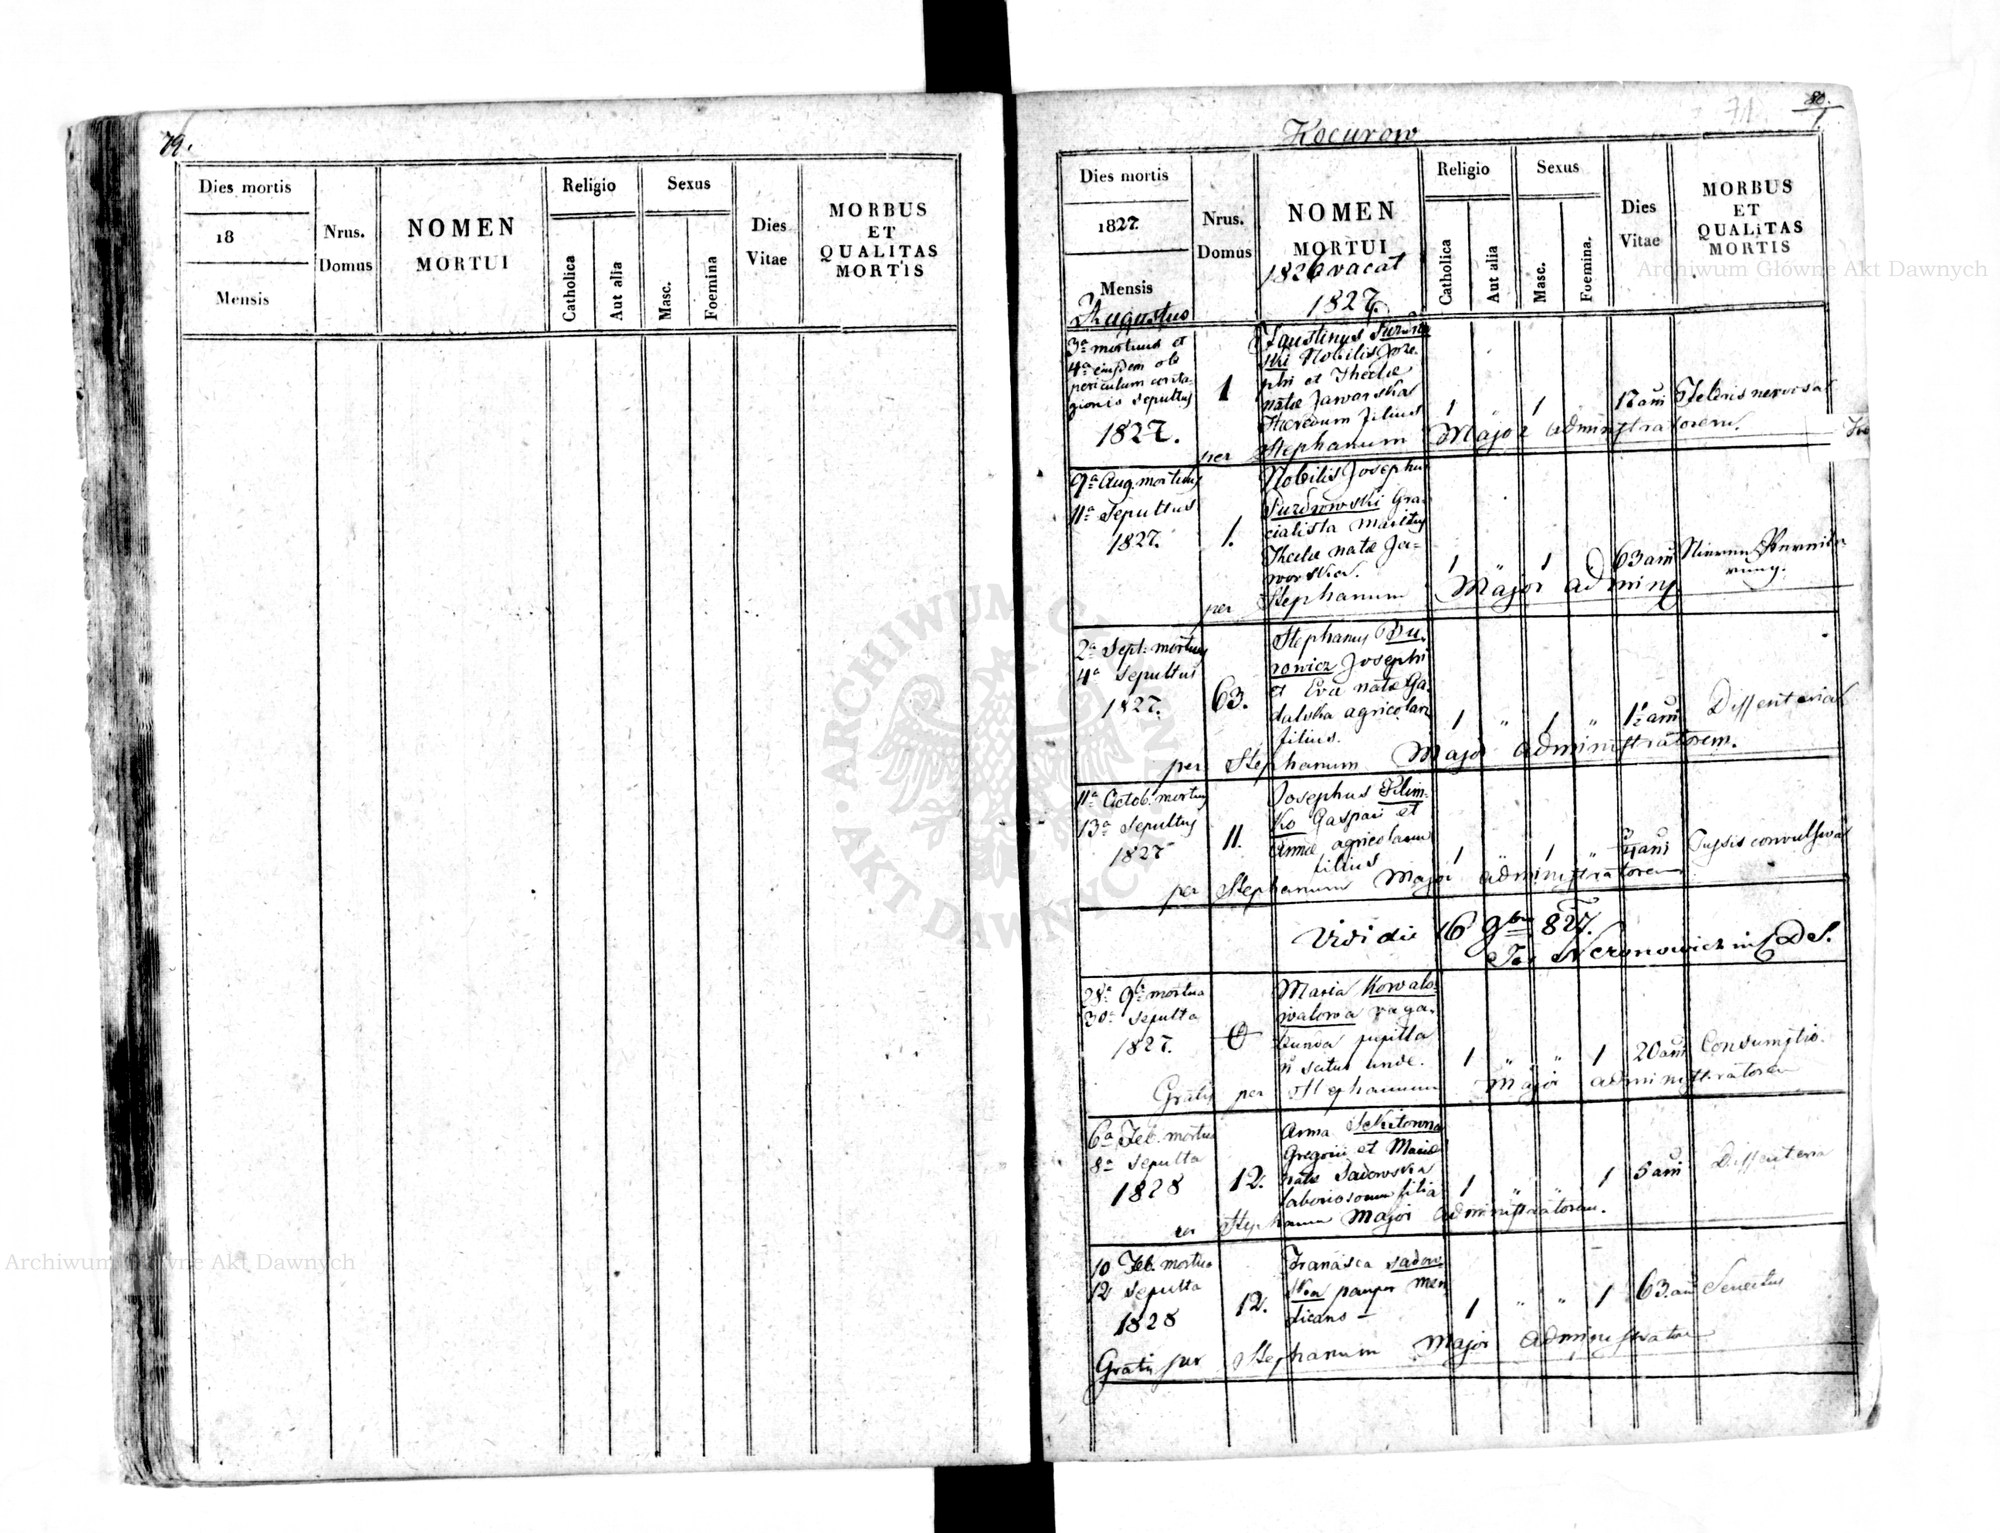 79.
Dies mortis
18
Mensis
Nrus.
Domus
NOMEN
MORTUI
Religio
Catholica
Aut alia
Sexus
Masc.
Foemina
Dies
Vitae
MORBUS
ET
QUALITAS
MORTIS
80.
71.
Kocurow
Dies mortis
1827.
Mensis
Augustus
Nrus.
Domus
NOMEN
MORTUI
1826 vacat
1827.
Religio
Catholica
Aut alia
Sexus
Masc.
Foemina.
Dies
Vitae
MORBUS
ET
QUALITAS
MORTIS
3a mortuus et
4a ejusdem ob
periculum conta-
gionis sepultus
1827.
1
Faustinus
ski Nobilis Jose-
phi et Theclae
natae Jaworska
Haeredum filius
1 " 1
17 ani
Febris nervosa
per Stephanum Major administratorem.
9a Aug. mortuus
11a Sepultus
1827.
1.
Nobilis Josephus
Gra-
cialista maritus
Theclae natae Ja-
worska.
1 " 1
63 ani
per Stephanum Major admins
2a Sept. mortuus
4a Sepultus
1827.
63.
Stephanus Bu-
rowicz Josephi
et Eva natae Ga-
dalska agricolarum
filius.
1 " 1 "
1½ ani
Dissenteria
per Stephanum Major administratorem.
11a Octob. mortuus
13a Sepultus
1827
11.
Josephus Klim-
ko Gaspari et
Annae agricolarum
filius
1 " 1 "
ani
Tussis convulsiva
per Stephanum Major administratorem
Vidi die 16 9bris 827.
28a 9bris mortua
30a Sepulta
1827.
0
Maria Kowalo-
walowa vaga-
bunda pupilla
n scitur unde.
1 " " 1
20 ani
Consumptio.
Gratis per Stephanum Major administratorem
6a Feb. mortua
8a Sepulta
1828
12.
Anna
Gregorii et Mariae
natae Sadowska
laboriosorum filia
1 " " 1
5 ani
Dissenteria
per Stephanum Major administratorem.
10 Feb. mortua
12 Sepulta
1828
12.
Francisca Sadow-
ska pauper men-
dicans –
1 " " 1
63. ani
Senectus
Gratis per Stephanum Major administrator
ARCHIWUM GŁÓWNE AKT DAWNYCH
Archiwum Główne Akt Dawnych
Archiwum Główne Akt Dawnych